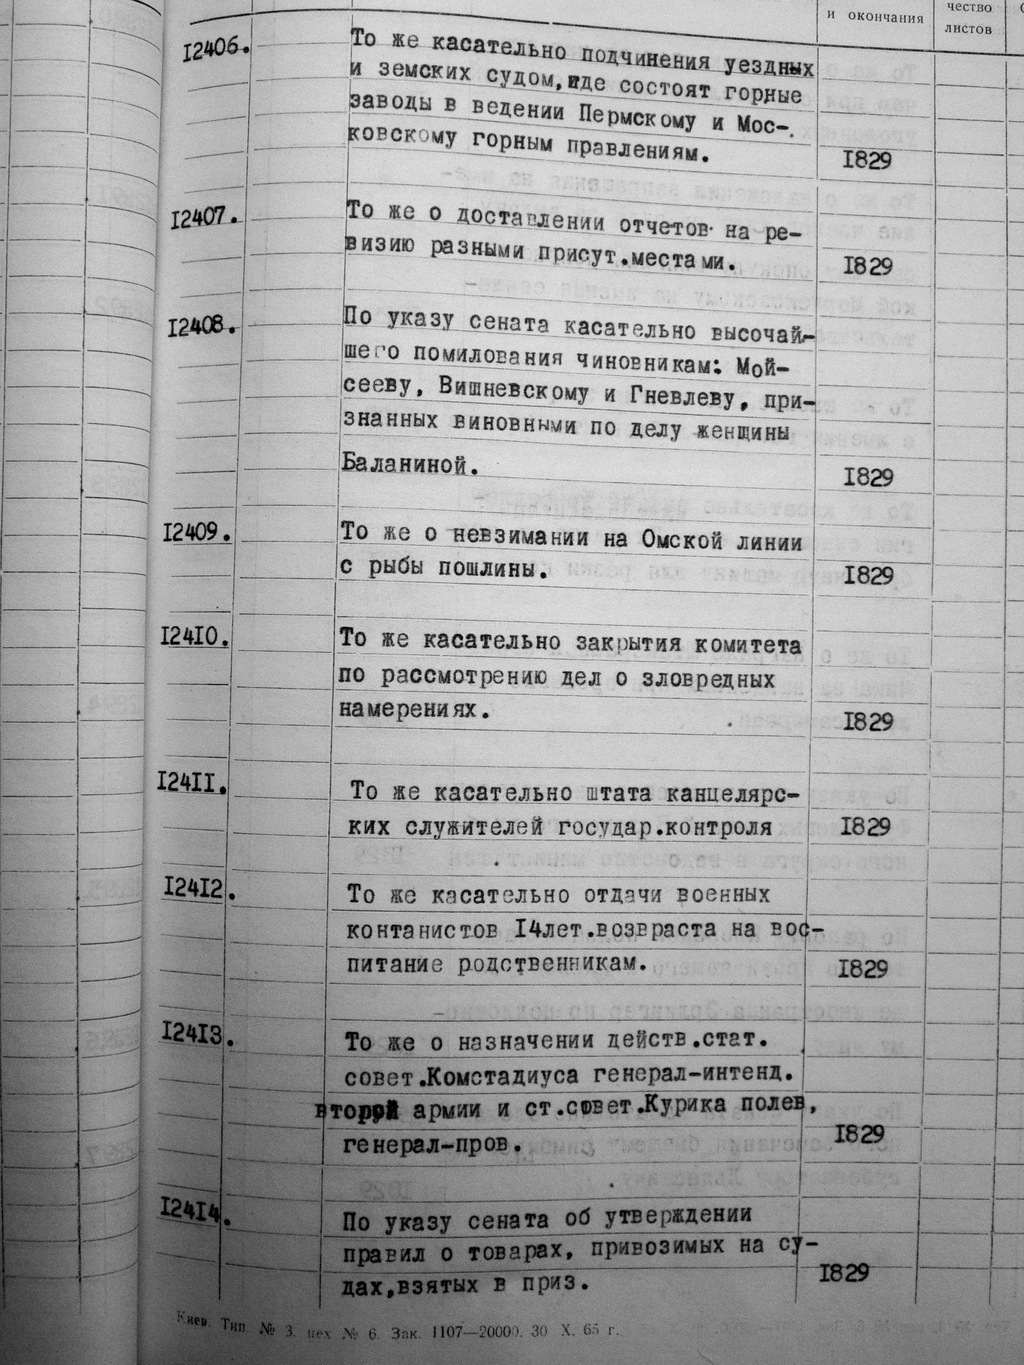 и окончания
чество
листов
12406.
То же касательно подчинения уездных
и земских судом, где состоят горные
заводы в ведении Пермскому и Мос-
ковскому горным правлениям.
1829
12407.
То же о доставлении отчетов на ре-
визию разными присут.местами.
1829
12408.
По указу сената касательно высочай-
шего помилования чиновникам: Мой-
сееву, Вишневскому и Гневлеву, при-
знанных виновными по делу женщины
Баланиной.
1829
12409.
То же о невзимании на Омской линии
с рыбы пошлины.
1829
12410.
То же касательно закрытия комитета
по рассмотрению дел о зловредных
намерениях.
1829
12411.
То же касательно штата канцелярс-
ких служителей государ.контроля
1829
12412.
То же касательно отдачи военных
контанистов 14лет.возвраста на вос-
питание родственникам.
1829
12413.
То же о назначении действ.стат.
совет.Комстадиуса генерал-интенд.
второй армии и ст.совет.Курика полев,
генерал-пров.
1829
12414.
По указу сената об утверждении
правил о товарах, привозимых на су-
дах,взятых в приз.
1829
Киев. Тип. № 3. цех № 6. Зак. 1107—20000. 30 X. 65 г.